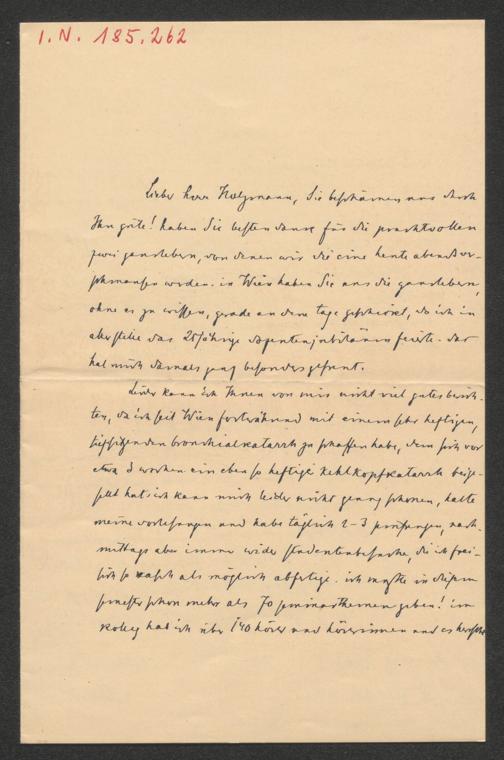 I. N. 185.262
Lieber herr Holzmann, Sie beschämen uns durch
Ihre güte! haben Sie besten dank für die prachtvollen
zwei gansleber, von denen wir die eine heute abend ver-
schmausen werden. in Wien haben Sie uns die gansleber,
ohne es zu wissen, gerade an dem tage geschickt, da ich in
aller stille das 25jährige dozentenjubiläum feierte. das
hat mich damals ganz besonders gefreut.
Leider kann ich Ihnen von mir nicht viel gutes berich-
ten, da ich seit Wien fortwährend mit einem sehr heftigen,
tiefsitzenden bronchialkatarrh zu schaffen habe, dem sich vor
etwa 3 wochen ein eben so heftiger kehlkopfkatarrh beige-
sellt hat. ich kann mich leider nicht genug schonen, halte
meine vorlesungen und habe täglich 2-3 prüfungen, nach-
mittags aber immer wider studentenbesuche, die ich frei-
lich so rasch als möglich abfertige. ich musste in diesem
semester schon mehr als 70 seminarthemen geben! im
kolleg hab ich über 140 hörer und hörerinnen und es herrscht